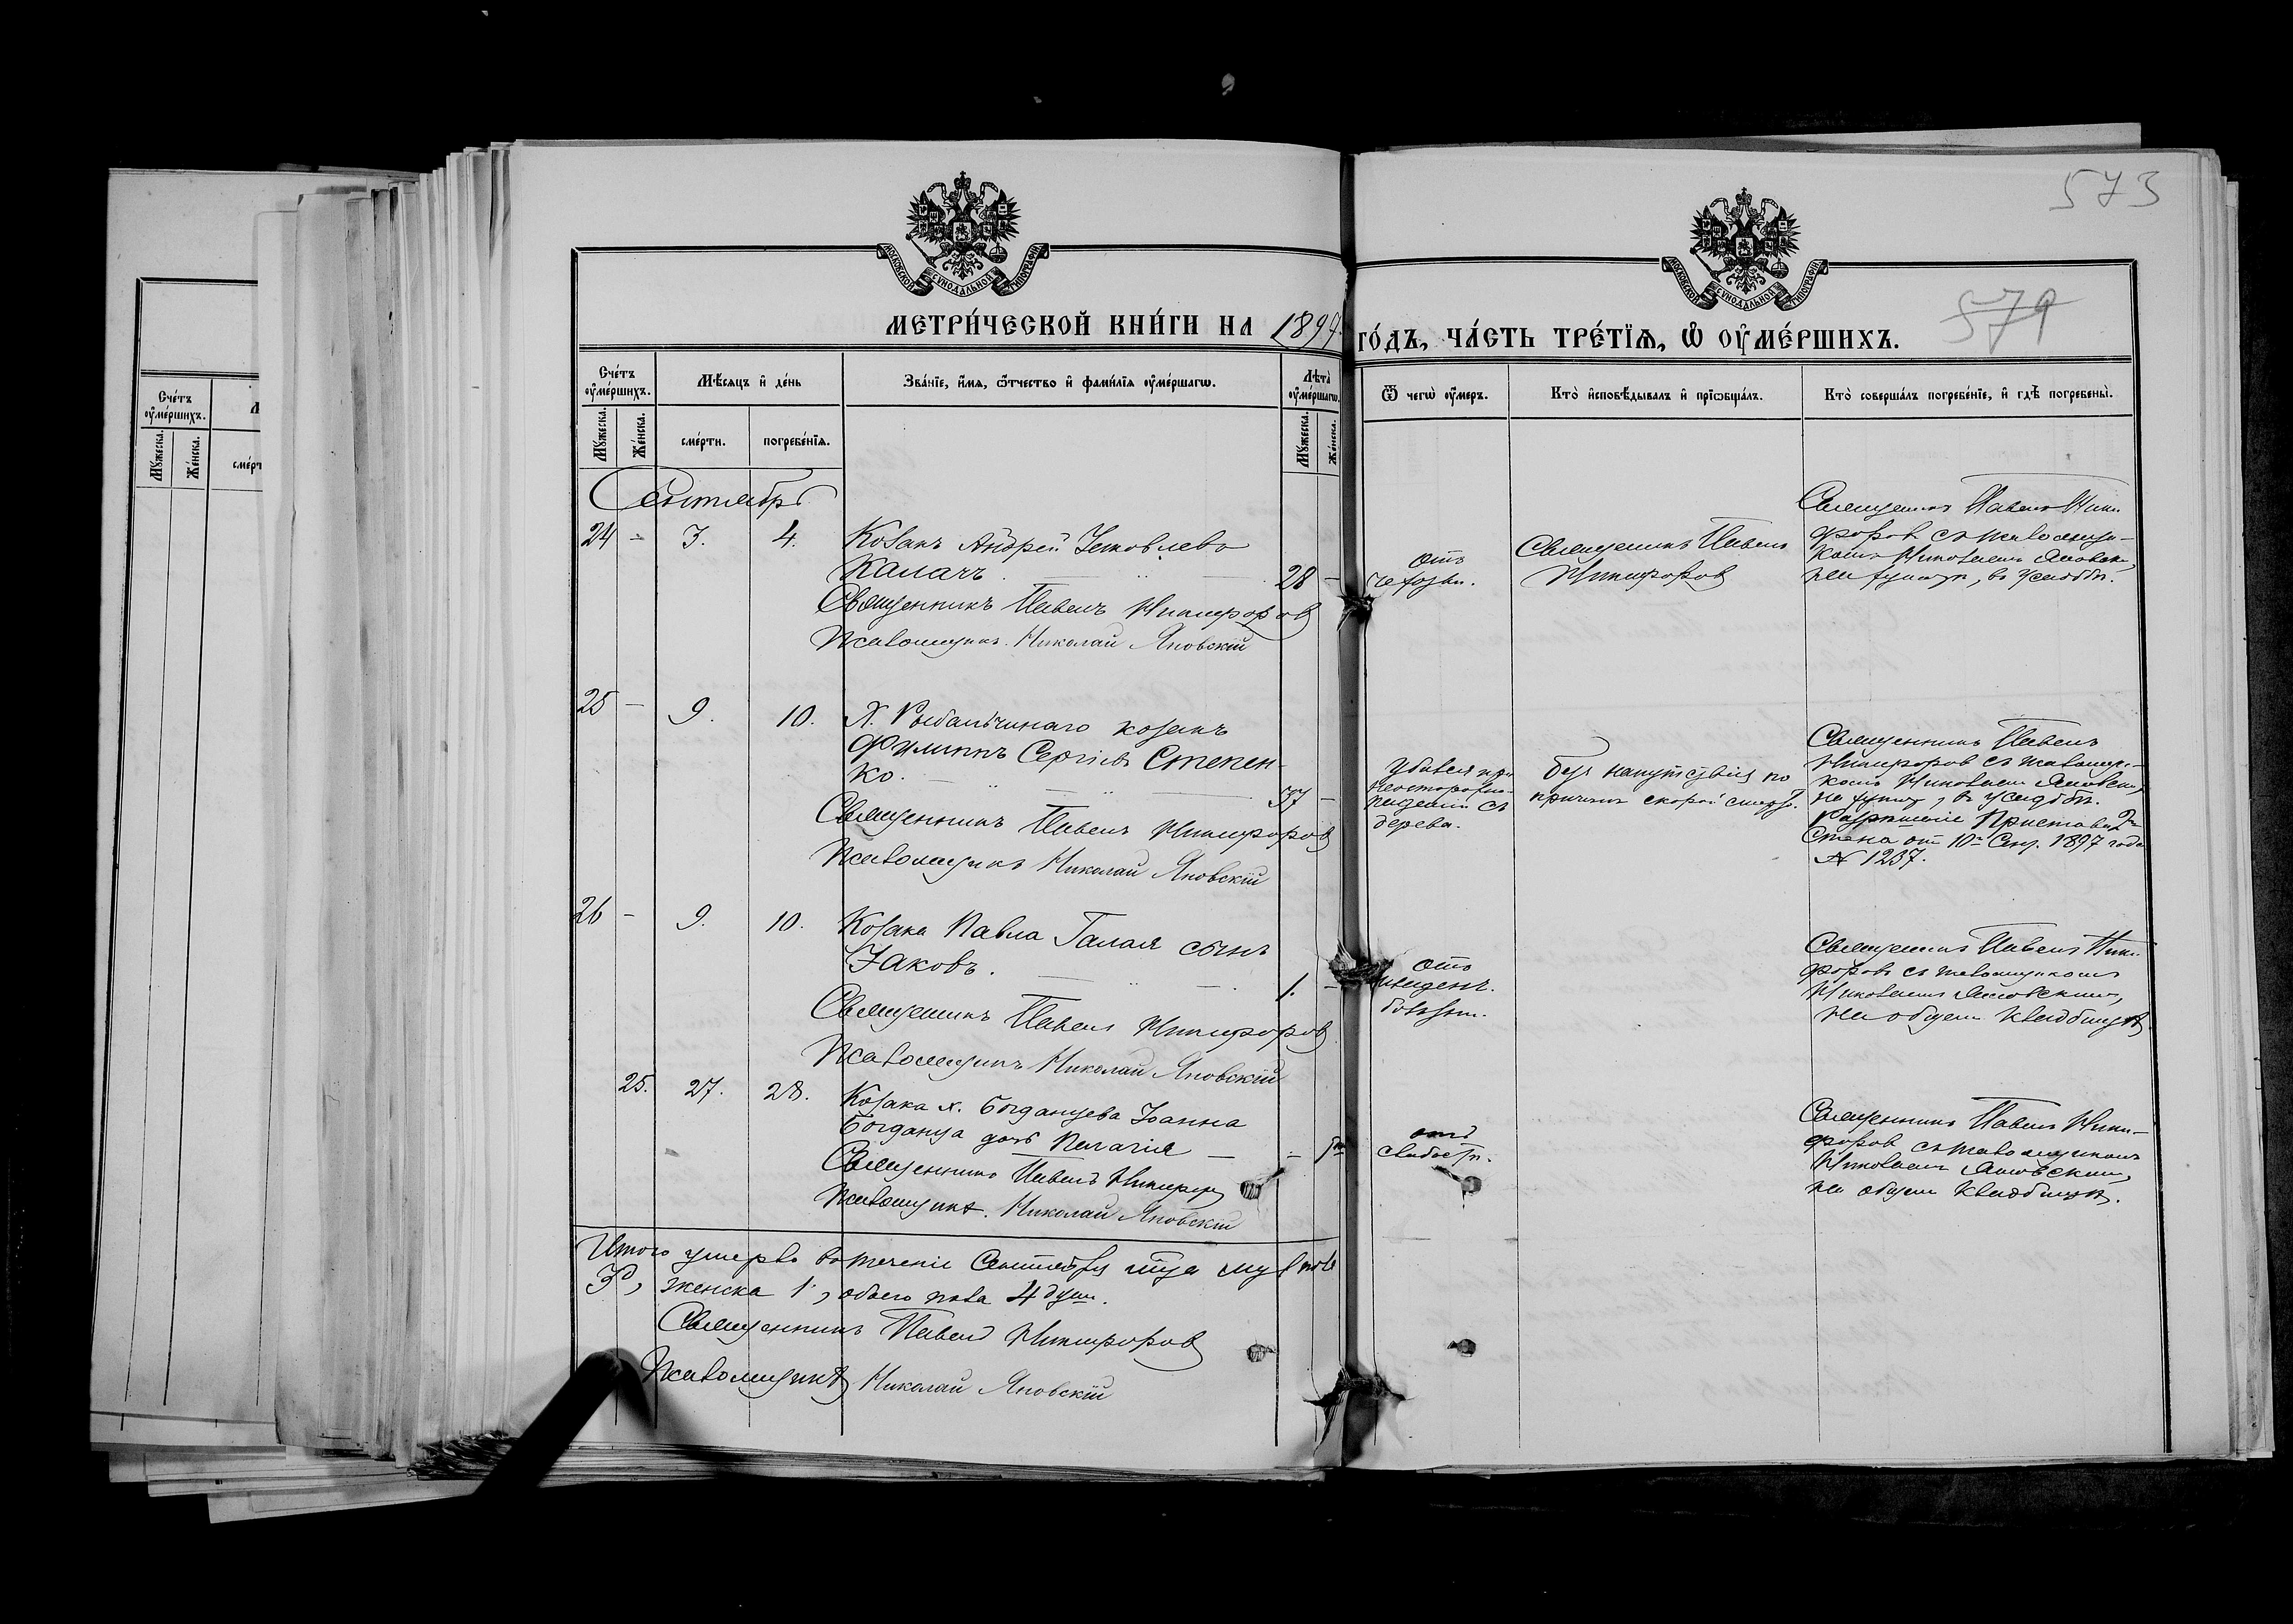 573
МОСКОВСКОЙ СѴНОДАЛЬНОЙ ТИПОГРАФІИ
МОСКОВСКОЙ СѴНОДАЛЬНОЙ ТИПОГРАФІИ
579
МЕТРИ́ЧЕСКОЙ КНИ́ГИ НА 1897 ГО́ДЪ, ЧА́СТЬ ТРЕ́ТІѦ, Ѡ҆ ОУ҆МЕ́РШИХЪ.
Сче́тъ оу҆ме́ршихъ.
Мꙋ́жеска.
Же́нска.
Мѣ́сѧцъ и҆ де́нь
сме́рти.
погребе́нїѧ.
Зва́нїе, и҆́мѧ, ѻ҆́тчество и҆ фами́лїѧ оу҆ме́ршагѡ.
Лѣ́та оу҆ме́ршагѡ.
Мꙋ́жеска.
Же́нска.
Ѿ чегѡ̀ оу҆́меръ.
Кто̀ и҆сповѣ́дывалъ и҆ прїѡбща́лъ.
Кто̀ соверша́лъ погребе́нїе, и҆ гдѣ̀ погребены̀.
Сче́тъ
оу҆ме́ршихъ.
Мꙋ́жеска.
Же́нска.
Сентябрь
24 - 3. 4. Козакъ Андрей Іаковлевъ
Калачъ. 28 -
Священникъ Павелъ Никифоровъ
Псаломщикъ. Николай Яновскій
отъ
чахотки.
Священникъ Павелъ
Никифоровъ
Священникъ Павелъ Ники-
форовъ съ псаломщи-
комъ Николаемъ Яновским,
на хуторѣ, въ усадьбѣ.
25 - 9. 10. Х. Рыбальчинаго козакъ
Филиппъ Сергіевъ Степен-
ко. 37 -
Священникъ Павелъ Никифоровъ
Псаломщикъ Николай Яновскій
Убился при
неосторожн.
паденіи съ
дерева.
безъ напутствія по
причинѣ скорой смерти.
Священникъ Павелъ
Никифоровъ съ псаломщи-
комъ Николаем Яновским,
на хуторѣ, въ усадьбѣ.
Разрѣшеніе Пристава 2го
Стана от 10го Сен. 1897 года
№ 1237.
26 - 9. 10. Козака Павла Галая сынъ
Іаковъ. 1. -
Священникъ Павелъ Никифоровъ
Псаломщикъ Николай Яновскій
отъ
младенч.
болѣзни.
Священникъ Павелъ Ники-
форовъ съ псаломщикомъ
Николаемъ Яновскимъ,
на общем кладбищѣ
25. 27. 28. Козака х. Богданцева Іоанна
Богданца дочь Пелагія - -
Священникъ Павелъ Никифоров
Псаломщикъ. Николай Яновскій
отъ
слабости.
Священникъ Павелъ Ники-
форовъ съ псаломщикомъ
Николаемъ Яновским,
на общем кладбищѣ.
Итого умерло въ теченіе Сентября мца муж. пола
3, женска 1, обоего пола 4 душ.
Священникъ Павелъ Никифоровъ
Псаломщикъ Николай Яновскій